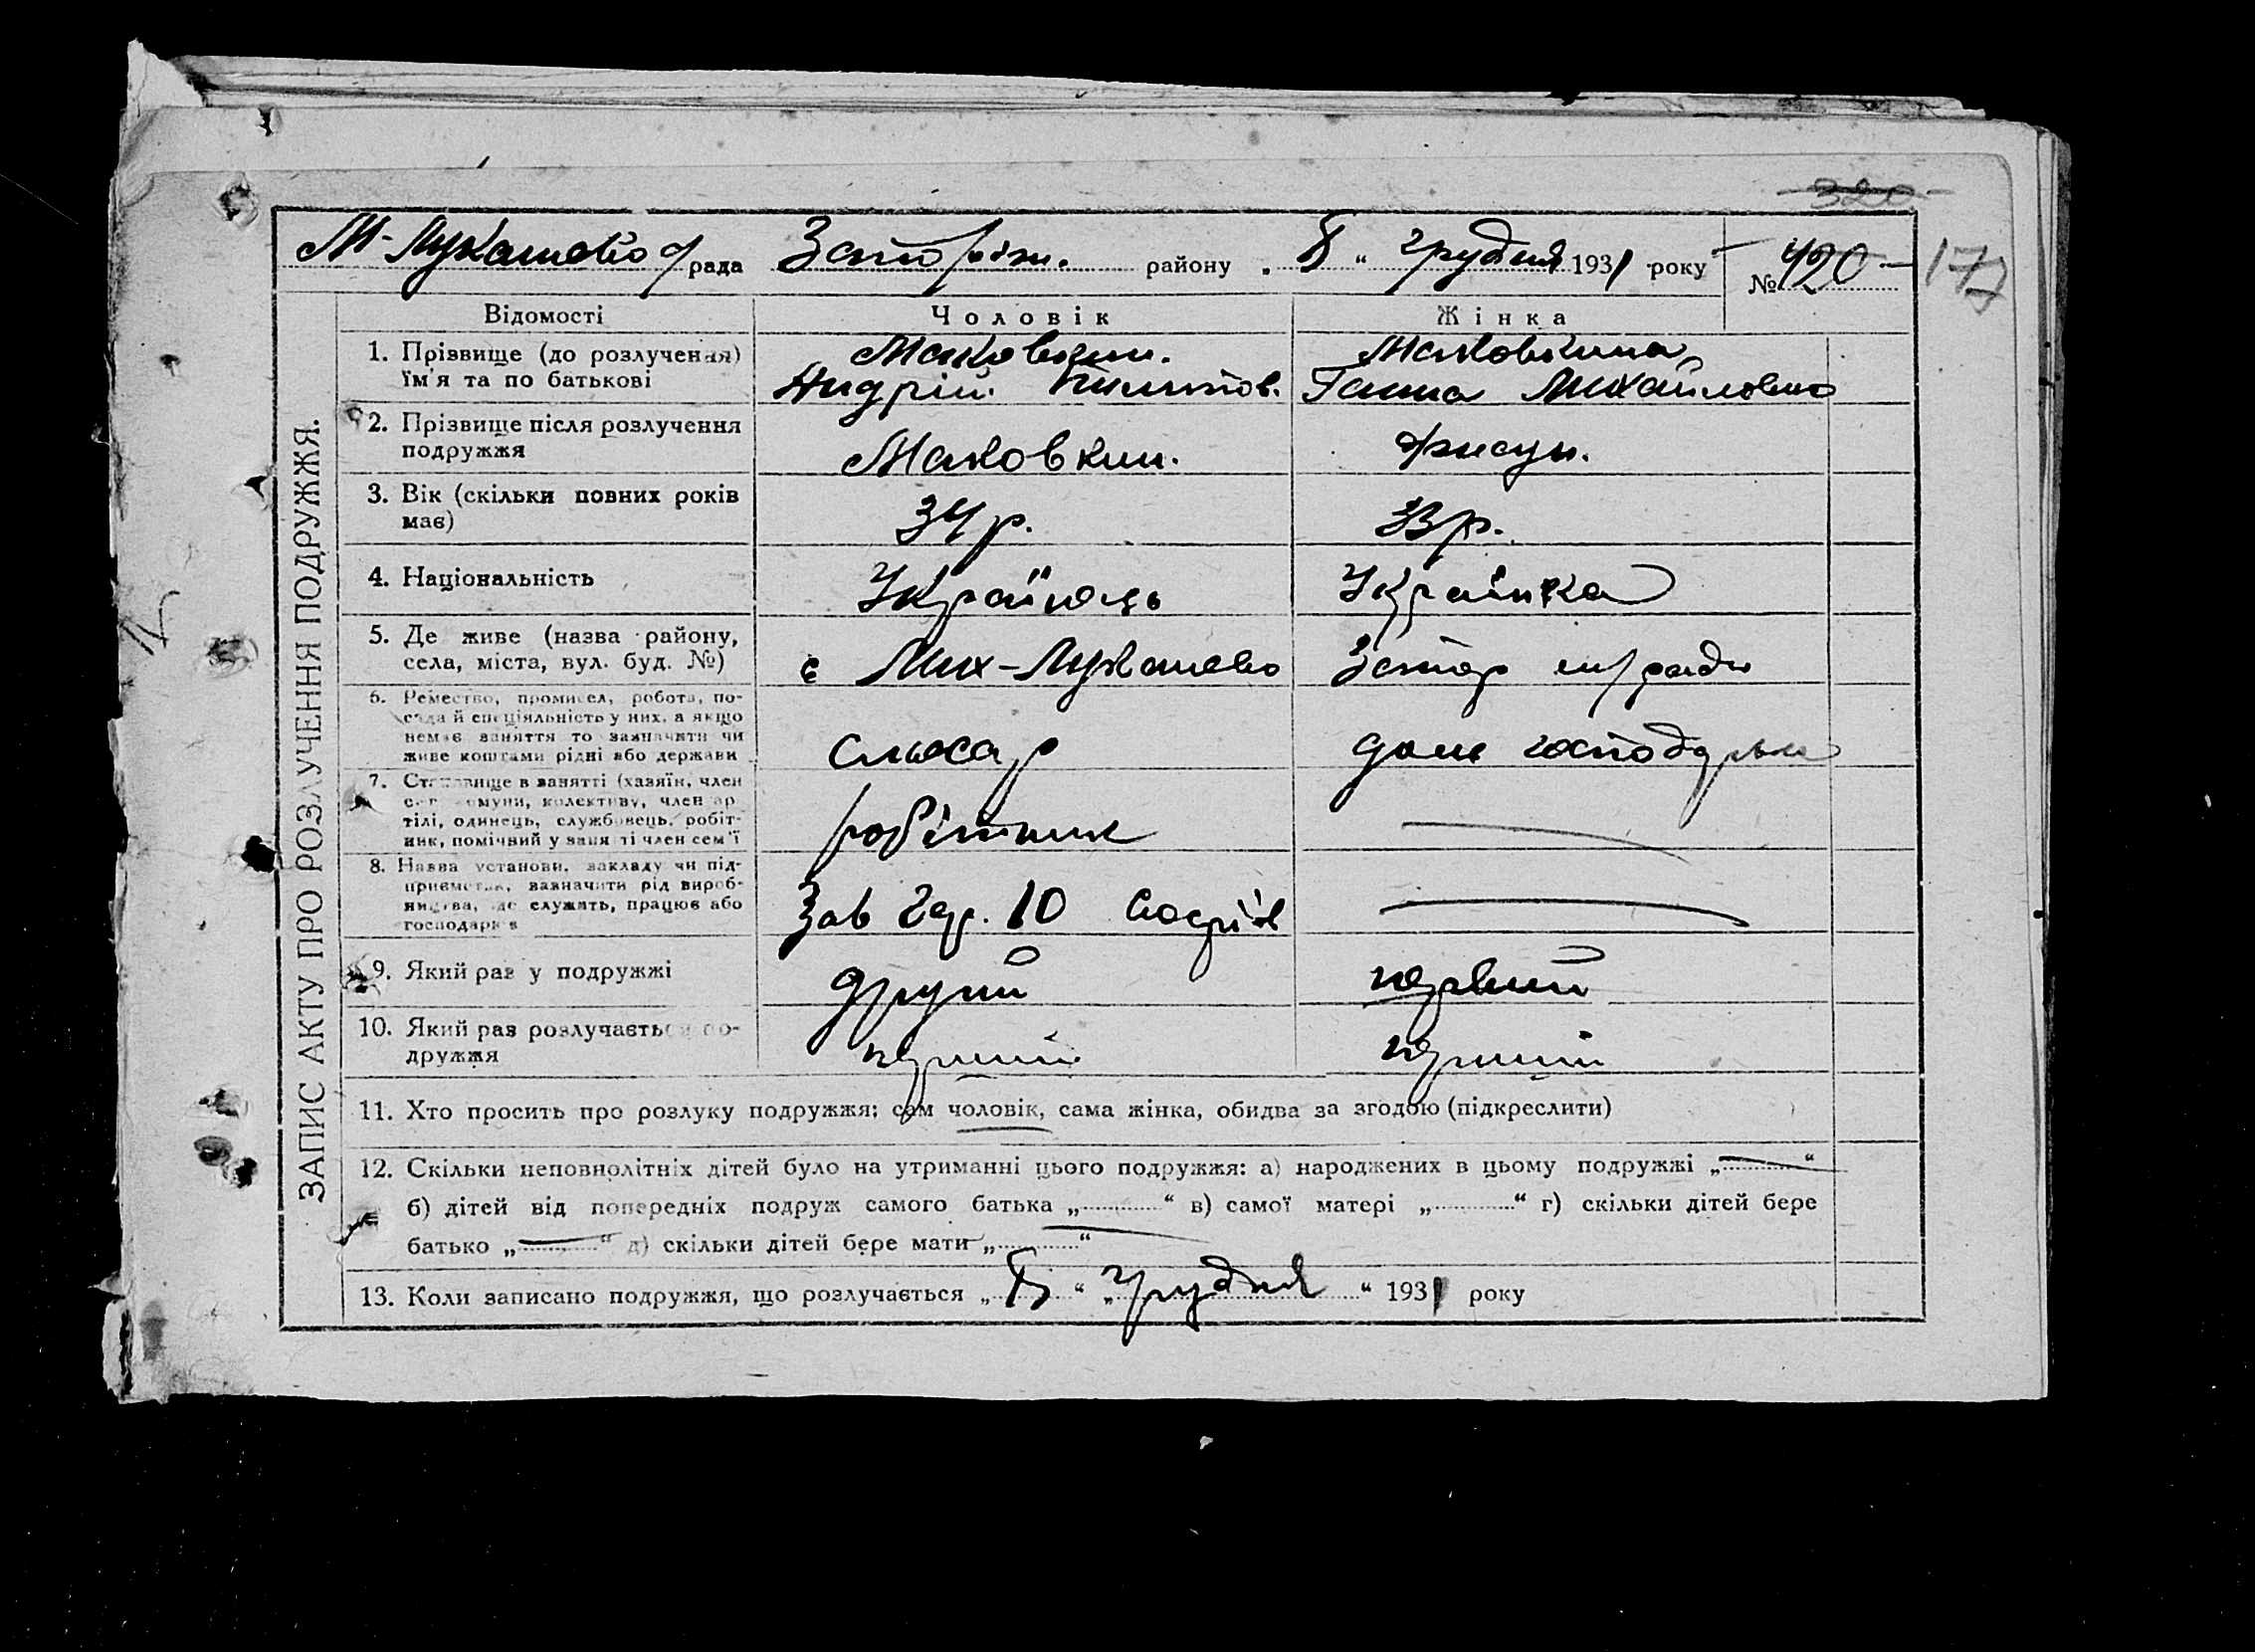 320
М-Лукашево с/рада Запоріж. району „5“ грудня 1931 року № 420 177
ЗАПИС АКТУ ПРО РОЗЛУЧЕННЯ ПОДРУЖЖЯ.
Відомості Чоловік Жінка
1. Прізвище (до розлучення) Маковкин. Маковкина
їм'я та по батькові Андрій Пилипов. Ганна Михайловна
2. Прізвище після розлучення
подружжя Маковкин. Фисун.
3. Вік (скільки повних років
має) 34 р. 33 р.
4. Національність Українець Українка
5. Де живе (назва району,
села, міста, вул. буд. №) с Мих-Лукашево Запор м/рада
6. Ремество, промисел, робота, по-
сада й спеціяльність у них, а якщо
немає заняття то зазначити чи
живе коштами рідні або держави слюсар дом господарка
7. Становище в занятті (хазяїн, член
с.-г. комуни, колективу, член ар
тілі, одинець, службовець, робіт-
ник, помічний у занятті член сем'ї робітник
8. Назва установи, закладу чи під-
приємства, зазначити рід вироб-
ництва, де служить, працює або
господарює Зав 10
9. Який раз у подружжі другий первий
10. Який раз розлучається по-
дружжя перший перший
11. Хто просить про розлуку подружжя: сам чоловік, сама жінка, обидва за згодою (підкреслити)
12. Скільки неповнолітніх дітей було на утриманні цього подружжя: а) народжених в цьому подружжі „ “
б) дітей від попередніх подруж самого батька „ “ в) самої матері „ “ г) скільки дітей бере
батько „ “ д) скільки дітей бере мати „ “
13. Коли записано подружжя, що розлучається „5“ „грудня“ 1931 року